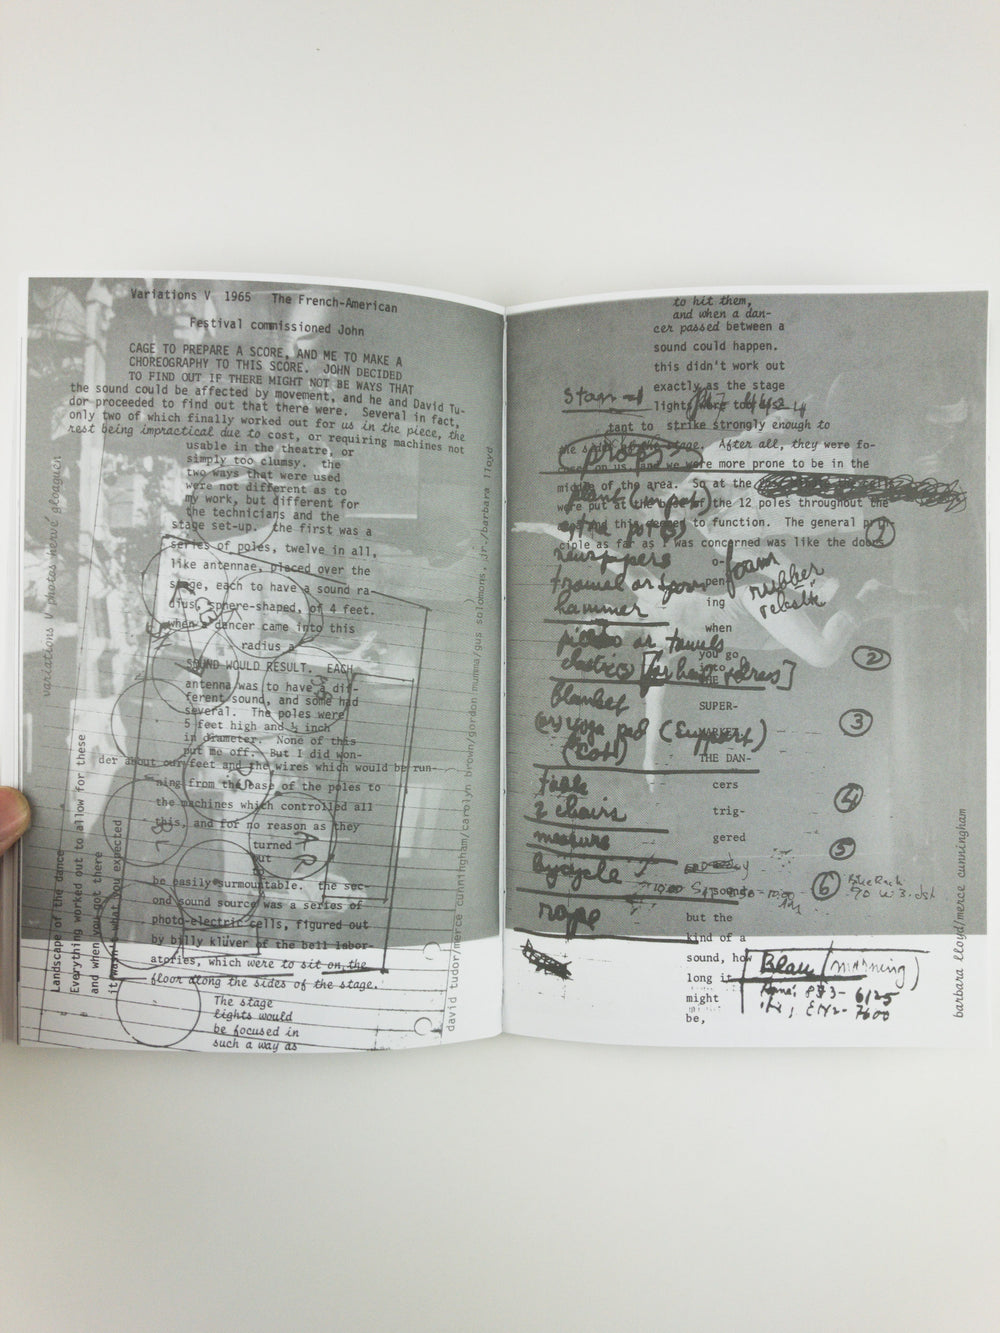 Variations V 1965 The French-American
Festival commissioned John
CAGE TO PREPARE A SCORE, AND ME TO MAKE A
CHOREOGRAPHY TO THIS SCORE. JOHN DECIDED
TO FIND OUT IF THERE MIGHT NOT BE WAYS THAT
the sound could be affected by movement, and he and David Tu-
dor proceeded to find out that there were. Several in fact,
only two of which finally worked out for us in the piece, the
rest being impractical due to cost, or requiring machines not
usable in the theatre, or
simply too clumsy. the
two ways that were used
were not different as to
my work, but different for
the technicians and the
stage set-up. the first was a
series of poles, twelve in all,
like antennae, placed over the
stage, each to have a sound ra-
dius, sphere-shaped, of 4 feet.
when a dancer came into this
radius a
SOUND WOULD RESULT. EACH
antenna was to have a dif-
ferent sound, and some had
several. The poles were
5 feet high and ½ inch
in diameter. None of this
put me off. But I did won-
der about our feet and the wires which would be run-
ning from the base of the poles to
the machines which controlled all
this, and for no reason as they
turned
out
be easily surmountable. the sec-
ond sound source was a series of
photo-electric cells, figured out
by billy kluver of the bell labor-
atories, which were to sit on the
floor along the sides of the stage.
The stage
lights would
be focused in
such a way as
variations V photos hervé gloaguen
Landscape of the dance
Everything worked out to allow for these
and when you got there
it wasn't what you expected
david tudor/merce cunningham/carolyn brown/gordon mumma/gus solomons, jr./barbara lloyd
to hit them,
and when a dan-
cer passed between a
sound could happen.
this didn't work out
exactly as the stage
lights were too dis-
tant to strike strongly enough to
the sides of the stage. After all, they were fo-
cused on us, and we were more prone to be in the
middle of the area. So at the
were put at the base of the 12 poles throughout the
and this seemed to function. The general prin-
ciple as far as I was concerned was like the doors
o-
pen-
ing
when
you go
into
THE
SUPER-
MARKET.
THE DAN-
cers
trig-
gered
sounds
but the
kind of a
sound, how
long it
might
be,
Stage
props
plant (in pot)
newspapers
trowel or
hammer
foam
rubber
elastic
1
pillow or towels
elastic(s) [for hair dress]
2
blanket
(or) yoga pad (support)
(cot)
3
table
2 chairs
4
measure
5
bycycle
6
Bike Rack
rope
Blau (morning)
873-6125
EN2-7600
barbara lloyd/merce cunningham